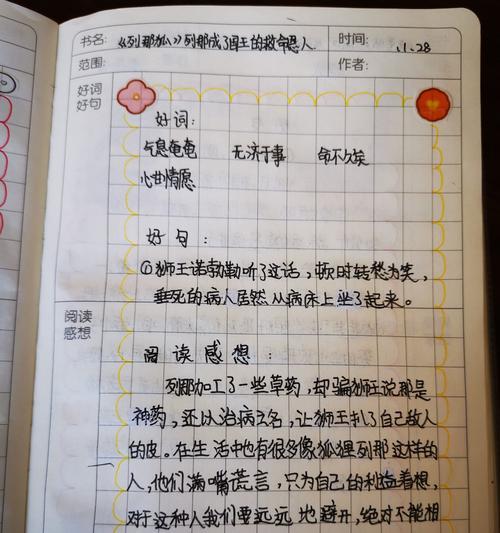 书名: 《列那狐》列那成了国王的救命恩人
时间: 1.28
范围:
作者:
好词
好句
好词:
气息奄奄 无济于事 命不久矣
心甘情愿
好句:
①狮王诺勃勒听了这话,顿时转愁为笑,
垂死的病人居然从病床上坐了起来。
阅读
感想
阅读感想:
列那加工了一些草药,却骗狮王说那是
神药,还以治病之名,让狮王扒了自己敌人
的皮。在生活中也有很多像狐狸列那这样的
人,他们满嘴谎言,只为自己的利益着想,
对于这种人我们要远远地避开,绝对不能相